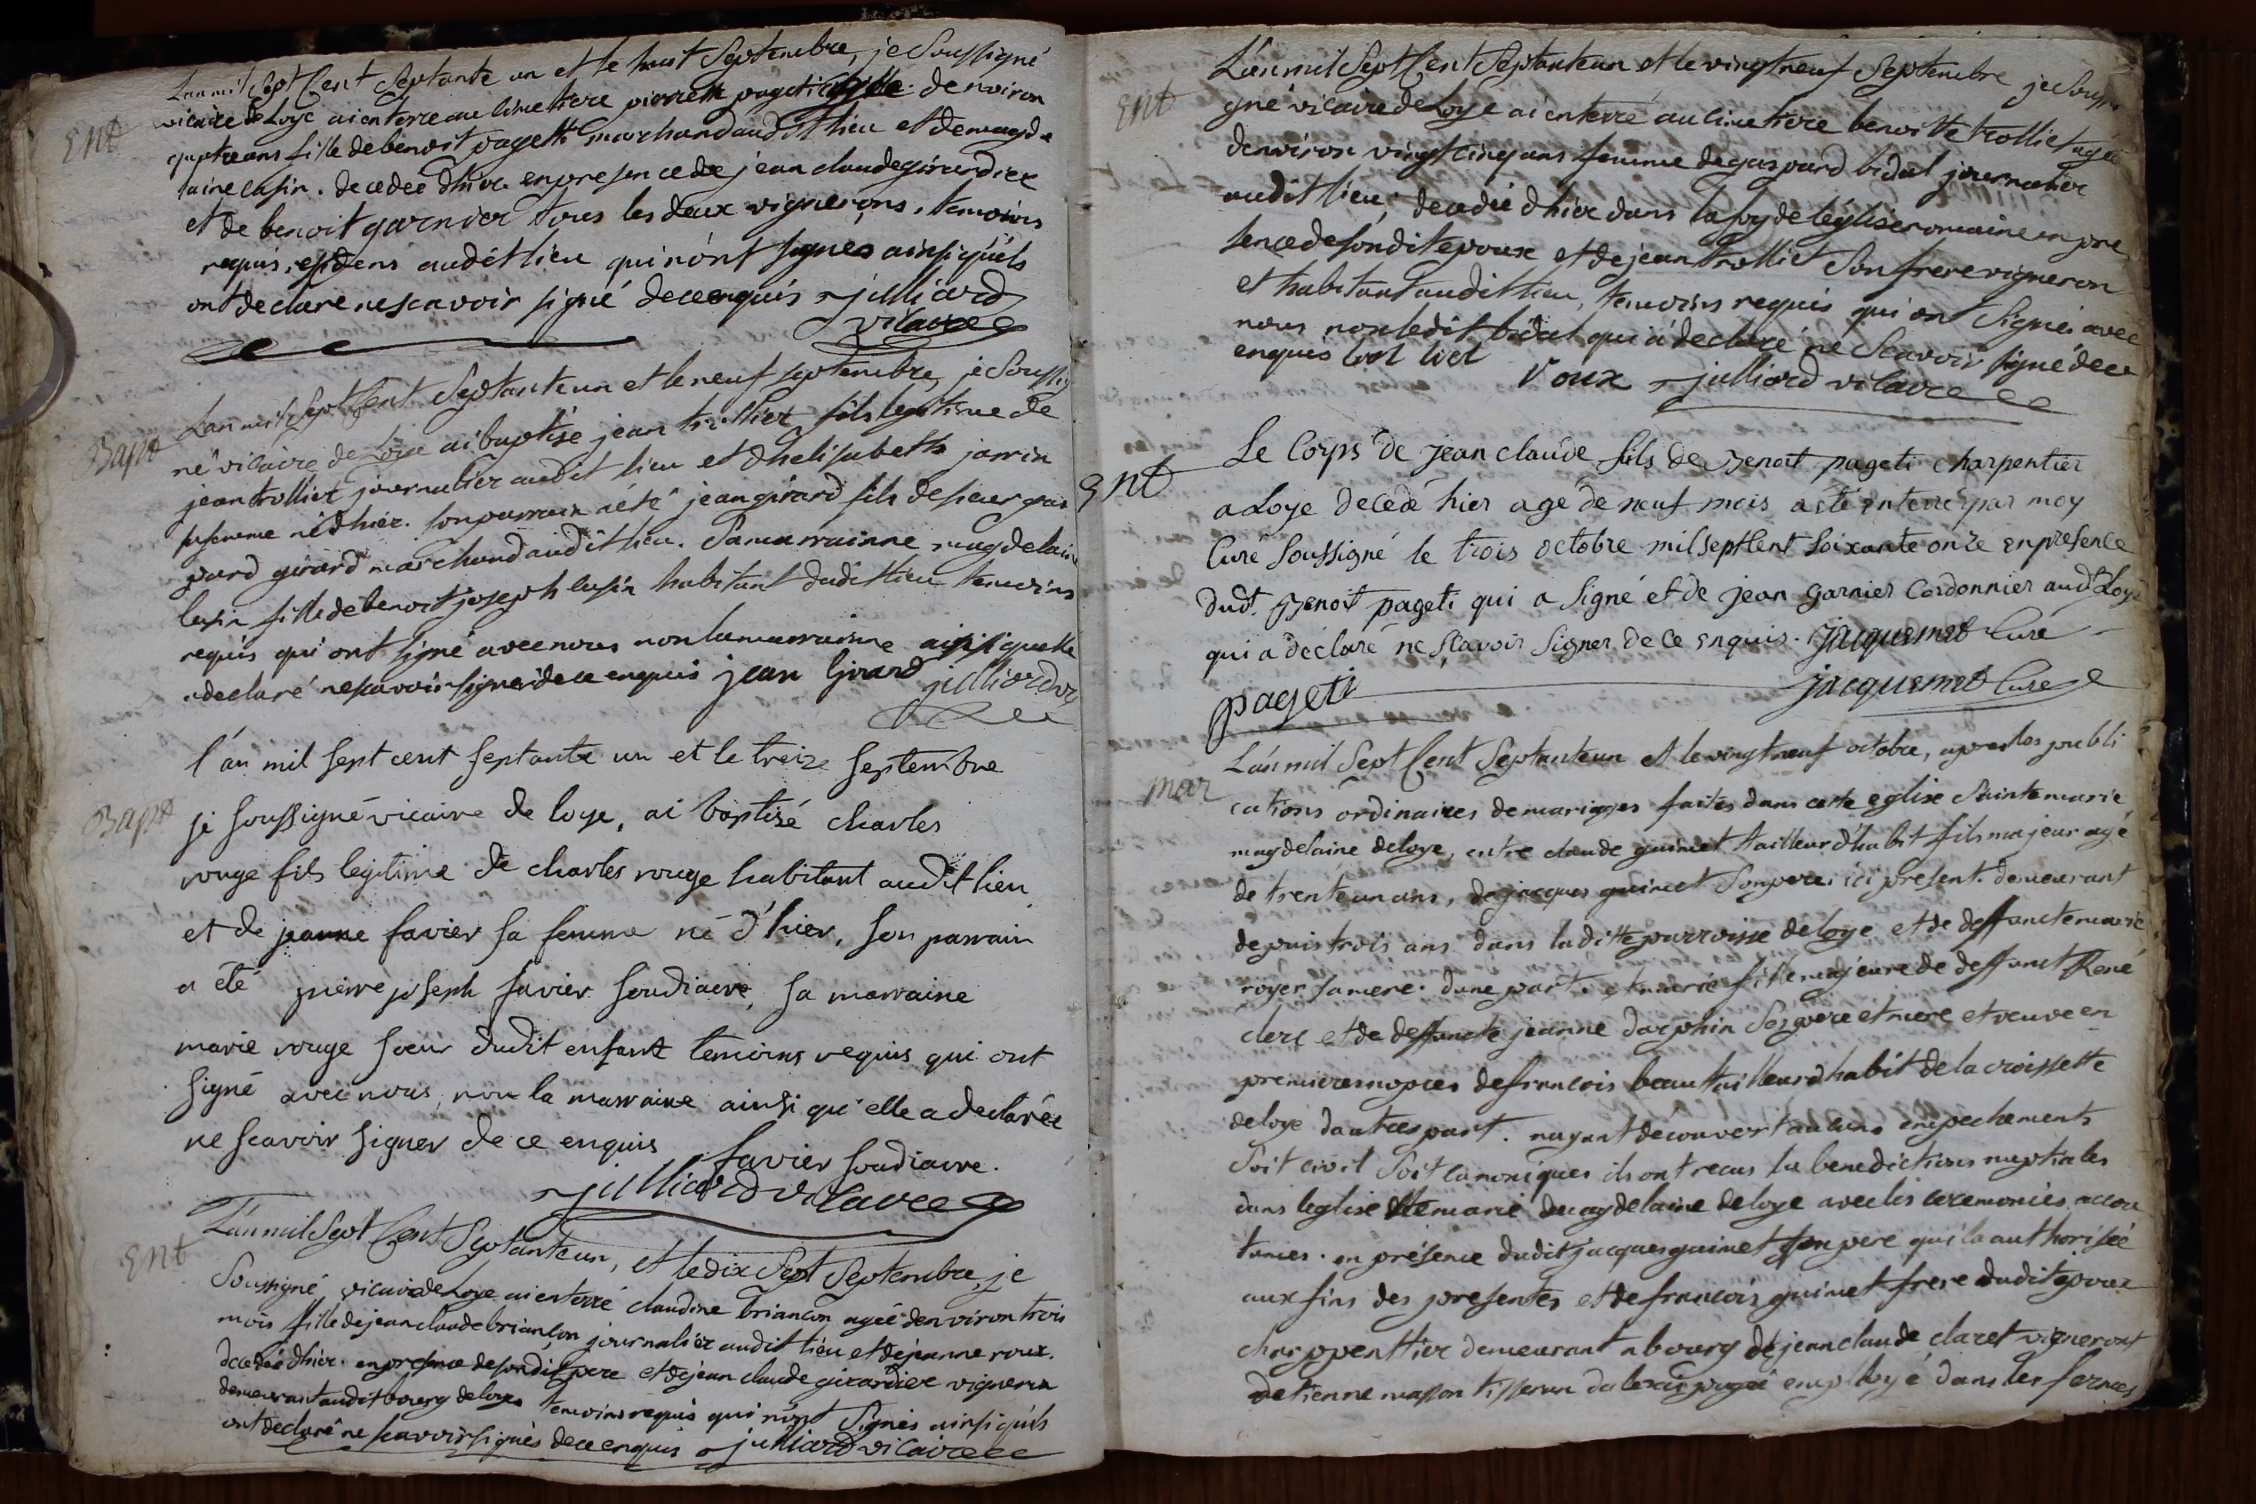 L'an mil sept Cent Septante un et le huit Septembre, je Soussigné
Ent
vicaire de Loye ai enterré au cimetiere pierrette pageti agée denviron
quatre ans fille de benoit pageti marchand audit lieu et de magde
laine cusin. decedée d'hier en presence de jean claude girardier
et de benoit garnier tous les deux vignerons, temoins
requis, residens audêt lieu qui n'ont signés ainsi qu'éls
ont declaré ne scavoir signé de ce enquis julliard
vicaire
L'an mil Sept Cent Septante un et le neuf septembre, je Soussig
Bapt
né vicaire de Loye ai baptisé jean trolliet fils legitime de
jean trolliet journalier audit lieu et d'helisabeth jannin
sa femme né d'hier. son parrain a été jean girard fils de sieur gas
pard girard marchand audit lieu. Sa marrainne magdelaine
cusin fille de benoit joseph cusin habitant dudit lieu temoins
requis qui ont signé avec nous non la marraine ainsi quelle
a declaré ne scavoir signer de ce enquis jean Girard julliard vic
l'an mil sept cent septante un et le treize septembre
Bapt
je soussigné vicaire de loye, ai baptisé charles
rouge fils legitime de charles rouge habitant audit lieu
et de jeanne favier sa femme né d'hier, son parrain
a été pierre joseph favier soudiacre, sa marraine
marie rouge soeur dudit enfant temoins requis qui ont
signé avec nous, non la marraine ainsi qu'elle a declarée
ne scavoir signer de ce enquis
favier soudiacre.
julliard vicaire
Ent
L'an mil Sept Cent Septante un, et le dix Sept Septembre, je
Soussigné vicaire de Loye ai enterré claudine briançon agée denviron trois
mois fille de jean claude briançon journalier audit lieu et de jeanne roux.
decedée d'hier. en presence de son dit pere et de jean claude girardier vigneron
demeurant audit bourg de loye temoins requis qui n'ont Signés ainsi qu'éls
ont declaré ne scavoir signés de ce enquis julliard vicaire
L'an mil Sept Cent Septante un et le vingt neuf Septembre je Soussi
Ent
gné vicaire de Loye ai enterré au cimetiere benoitte trolliet agée
denviron vingt cinq ans femme de gaspard bidal journalier
audit lieu, decedée d'hier dans la foy de l'église romaine en pre
sence de son dit epoux et de jean trolliet Son frere vigneron
et habitant audit lieu, temoins requis qui ont Signés avec
nous non ledit bidal qui a declaré ne Scavoir signé de ce
enquis
julliard vicaire
Le Corps de jean claude fils de Benoit pageti charpentier
Ent
a Loye decedé hier agé de neuf mois a eté enterré par moy
Curé soussigné le trois octobre mil sept Cent soixante onze en presence
dud.t Benoit pageti qui a signé et de jean garnier Cordonnier aud.t Loye
qui a déclaré ne sçavoir signer de ce enquis. jacquemet Curé
pageti jacquemet Curé
L'an mil Sept Cent Septante un et le vingt neuf octobre, apres les publi
mar
cations ordinaires de mariages faites dans cette eglise Sainte marie
magdelaine de loye, entre claude guinet tailleur d'habit fils majeur agé
de trente un ans, de jacques guinet Son pere ici présent demeurant
depuis trois ans dans la ditte parroisse de loye et de deffuncte marie
royer sa mere. d'une part. et marie fille majeure de deffunct René
clerc et de deffuncte jeanne darphin Ses pere et mere, et veuve en
premieres nopces de francois beau tailleur d'habit de la croissette
de loye d'autres part. n'ayant découvert aucuns empechements
Soit civil Soit canoniques ils ont recus la benedictions nuptiales
dans l'eglise Ste marie magdelaine de loye avec les ceremonies accou
tumés. en présence dudit jacques guinet son pere qui l'a authorisée
aux fins des presentes et de francois guinet frere dudit epoux
charppenttier demeurant a bourg de jean claude claret vigneront
detienne masson tisseran employé dans les fermes